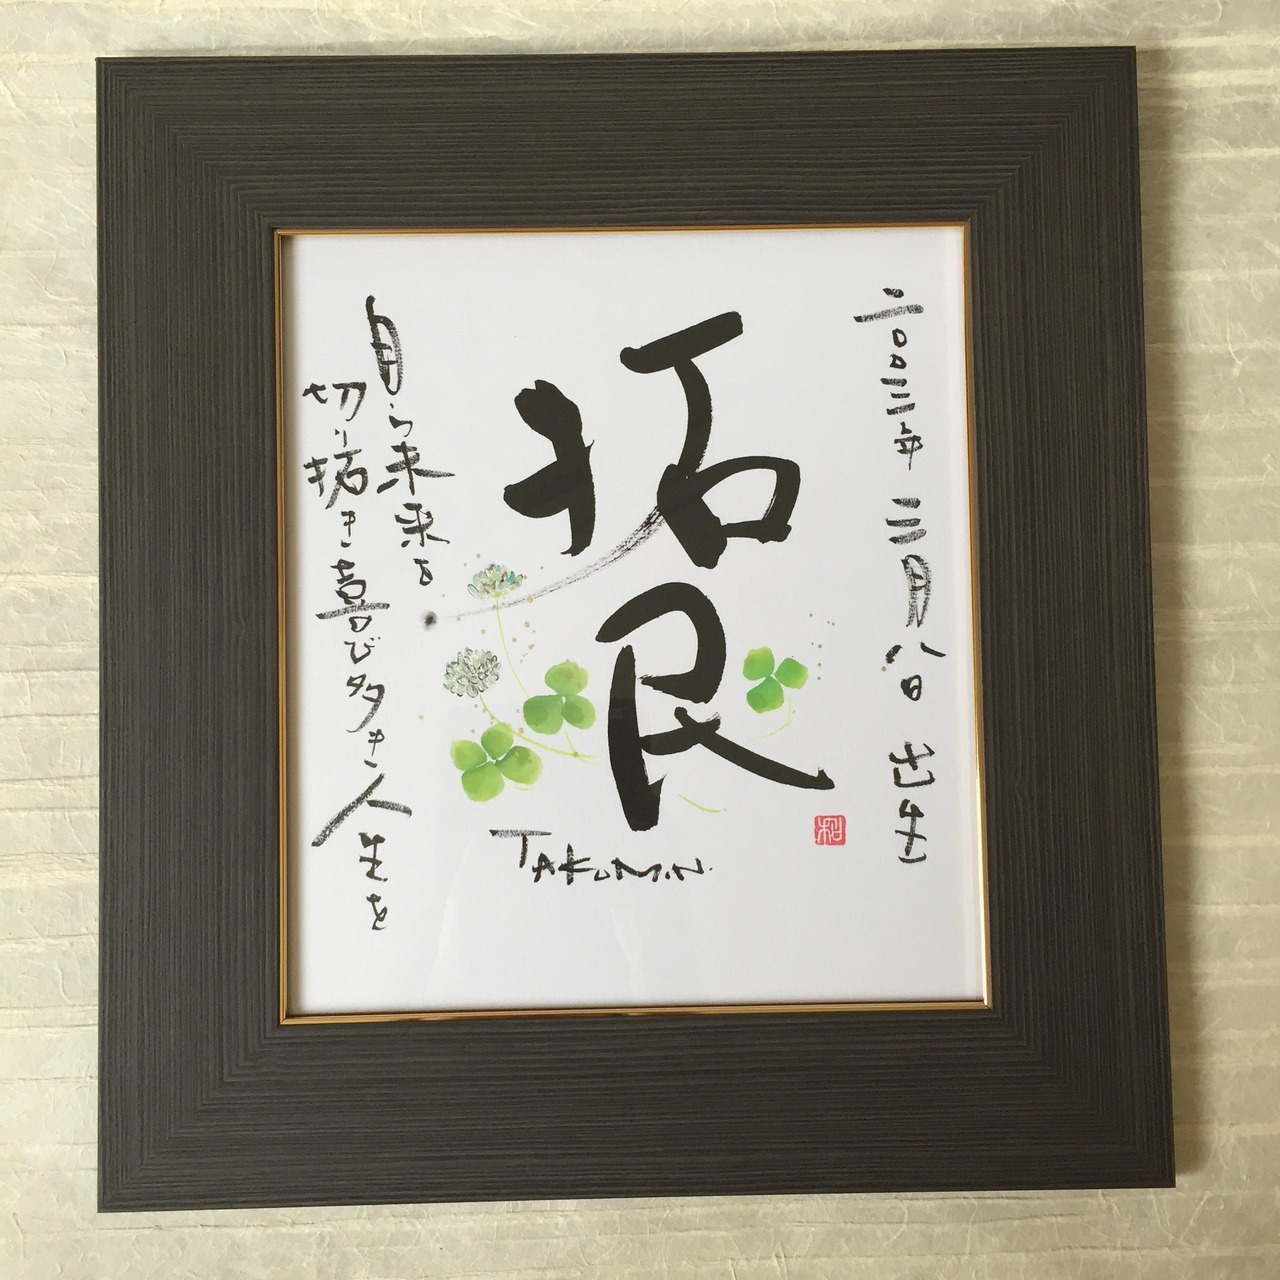 二〇〇三年 三月八日 出生
拓民
TAKUMIN.
自ら未来を
切り拓き喜び多き人生を